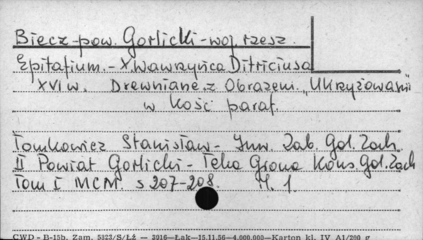 Biecz-pow. Gorlicki-woj rzesz.
Epitafium. - X. Wawrzyńca Ditriciusa
XVI w. Drewniane z Obrazem "Ukrzyżowanii
w Kość paraf.
Tomkowicz Stanisław - Inw. Zab. Gal. Zach.
II Powiat Gorlicki - Teka Grona Kons. Gal. Zach
Tom I MCM. s 207-208. H. 1.
CWD - B-15b. Zam. 5022/S/ŁŻ — 2016—Łak—15.11.56—4.000.000—Karton kl. IV A1/200 g